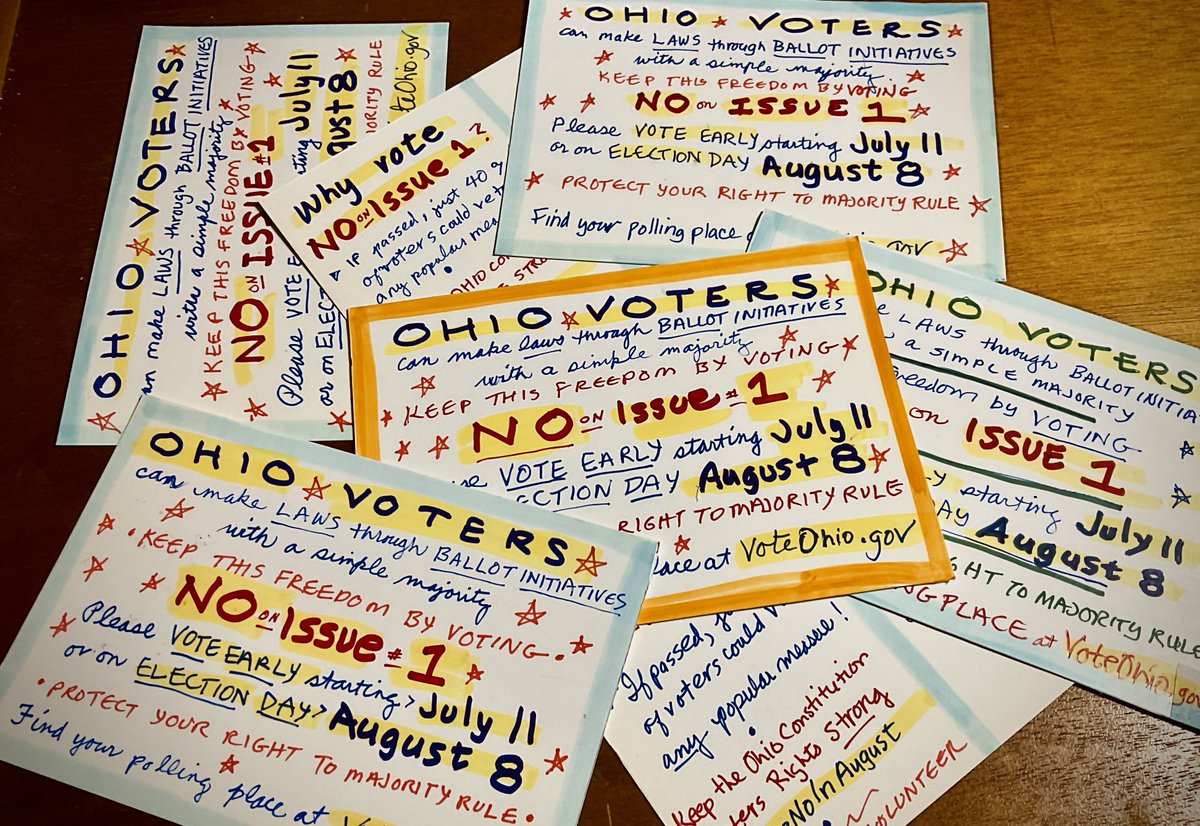 OHIO VOTERS
can make LAWS through BALLOT INITIATIVES
with a simple majority.
KEEP THIS FREEDOM BY VOTING
NO on ISSUE 1
Please VOTE EARLY starting July 11
or on ELECTION DAY August 8
PROTECT YOUR RIGHT TO MAJORITY RULE
Find your polling place
gov
OHIO VOTERS
make LAWS through BALLOT INITIATIVES
with a simple majority
KEEP THIS FREEDOM BY VOTING
NO ON ISSUE #1
Please VOTE
ting July 11
or on ELEC
gust 8
JORITY RULE
teOhio.gov
Why vote
NO ON Issue 1?
If passed, just 40%
of voters could vet
any popular mea
OHIO CO
OHIO VOTERS
can make laws through BALLOT INITIATIVES
with a simple majority
KEEP THIS FREEDOM BY VOTING
NO on Issue #1
VOTE EARLY starting July 11
ECTION DAY August 8
RIGHT TO MAJORITY RULE
lace at VoteOhio.gov
OHIO VOTERS
LAWS through BALLOT INITIA
a SIMPLE MAJORITY
freedom by VOTING
on ISSUE 1
starting July 11
DAY August 8
GHT TO MAJORITY RULE
NG PLACE at VoteOhio.go
OHIO VOTERS
can make LAWS through BALLOT INITIATIVES
with a simple majority
KEEP THIS FREEDOM BY VOTING.
NO ON Issue #1
Please VOTE EARLY starting July 11
or on ELECTION DAY August 8
PROTECT YOUR RIGHT TO MAJORITY RULE.
Find your polling place at
If passed, j
of voters could v
any popular measure!
Keep the Ohio Constitution
ters Rights Strong
eNoInAugust
VOLUNTEER